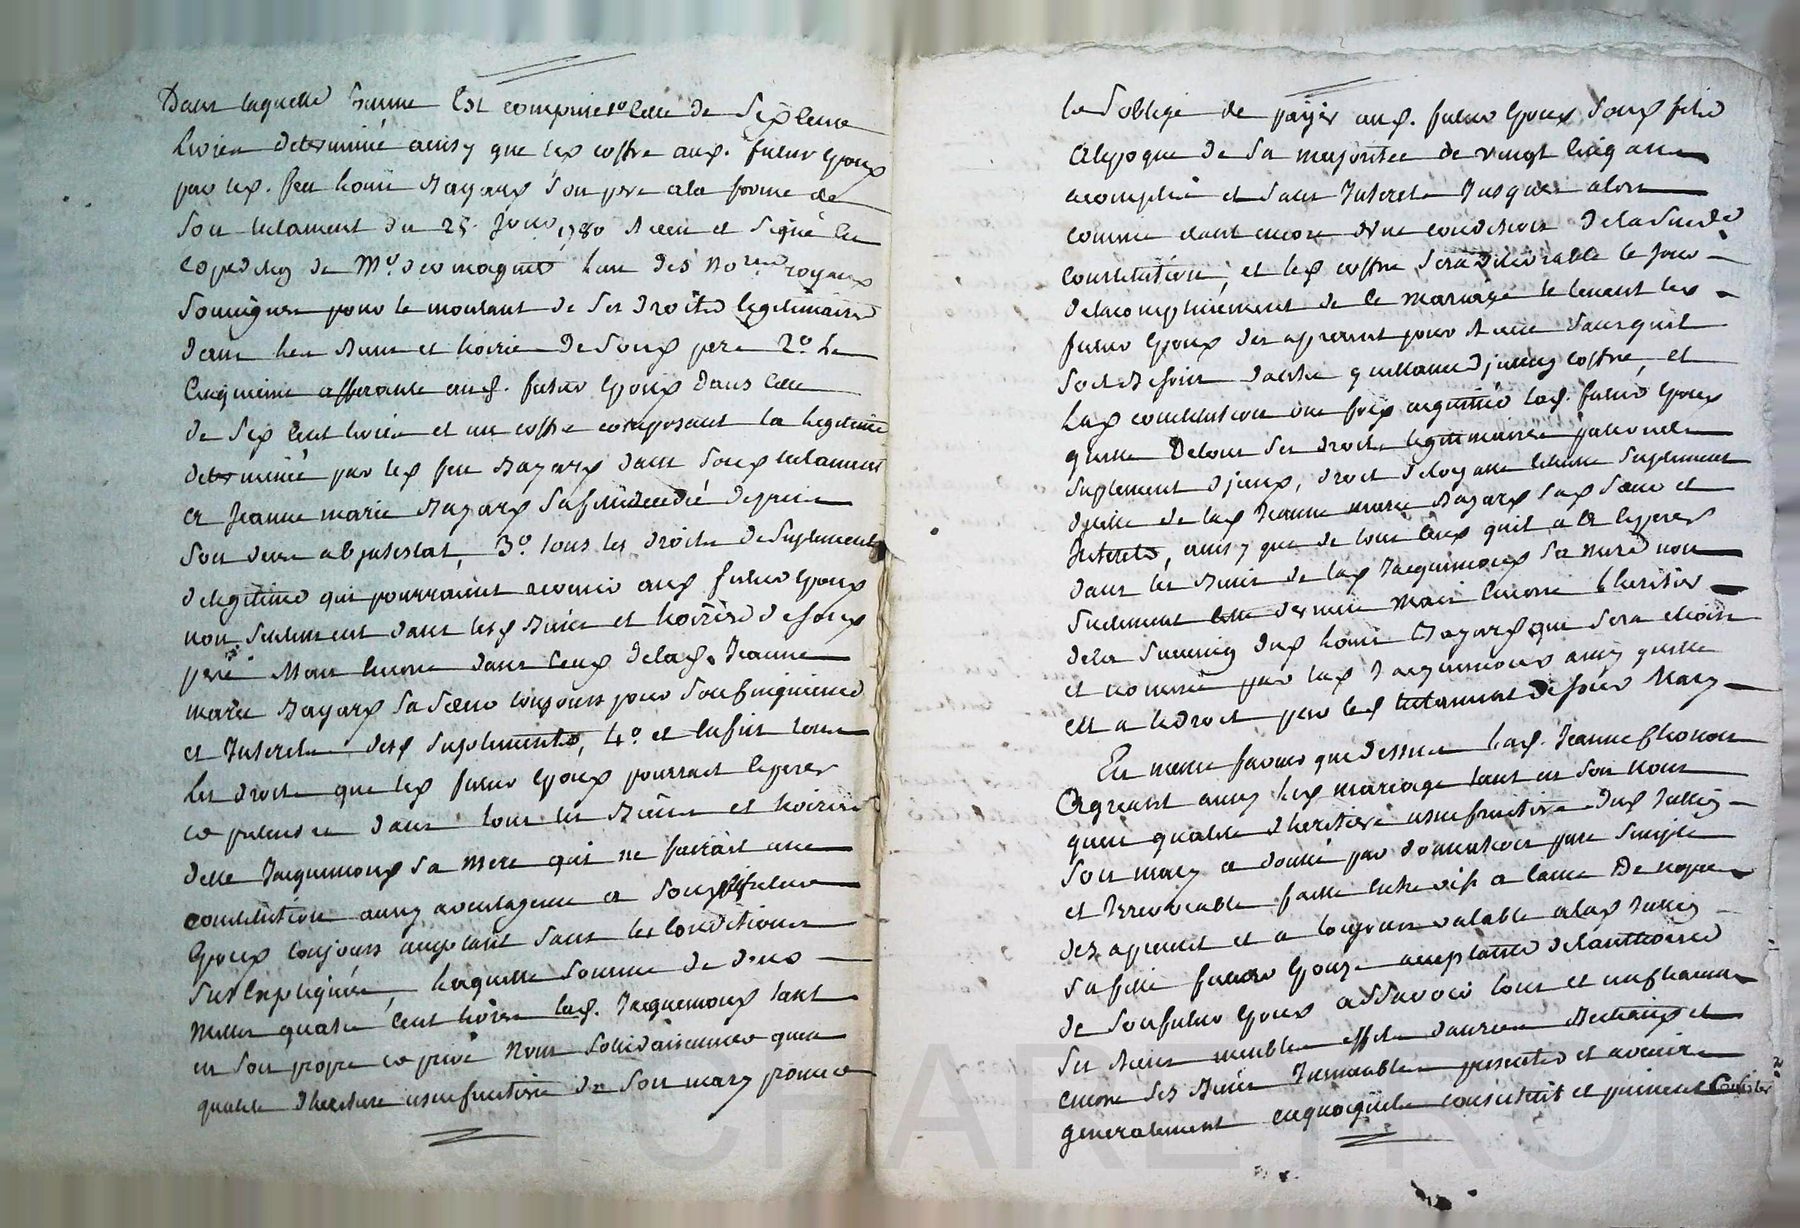 Dans laquelle somme Est comprise 1o Celle de Six Cent
livres determinée ainsy que led coffre aud. futur Epoux
par led. feu Louis Bayard Son pere a la forme de
Son testament du 25. Juin 1780 Receu et Signé En
Expedition de Me deomagnet l'un des Nores royaux
Soussignes pour le montant de Ses droits legitimaires
dans Les Biens et hoirie de Soud pere 2o La
Cinquieme afferante aud. futur Epoux dans Celle
de Six Cent livres et un coffre composant la legitime
determinée par led feu Bayard dans Soud testament
a Jeanne marie Bayard Sa fille decedée depuis
Son dece abjntestat, 3o tous les droits de Suplement
de legitime qui pourraient revenir aud futur Epoux
non Seulement dans lesd Biens et hoirie de Soud
pere Mais Encore dans Ceux de lad. Jeanne
marie Bayard Sa Soeur toujours pour Son Cinquieme
et Interets desd Suplements, 4o et Enfin tous
Les droits que led futur Epoux pourrait Esperer
et pretendre dans tous les Biens et hoirie
de lle Jacquemoud Sa Mere qui ne fairait une
constitution aussy avantageuse a Soud futur
Epoux toujours acceptant Sans les Conditions
Sus Expliquées, Laquelle Somme de deux
Milles quatre Cent livres lad. Jacquemoud tant
en Son propre et privé Nom Solidairement qu'en
qualité d'heritiere usufructiere de Son mary promet
et S'oblige de payer aud. futur Epoux Soud fils
a l'epoque de Sa majoritée de vingt Cinq ans
accomplis et Sans Interets Jusques alors
comme etant encore d'une condition de la Susde
Constitution, et led coffre Sera Exigible le jour
de l'accomplissement de Ce Mariage le tenant led
futur Epoux des apresent pour Receu Sans qu'il
Soit Besoin d'autre quittance djceluy coffre, et
Lad constitution une fois acquittée lad. futur Epoux
quitte De tous Ses droits legitimaires paternels
Suplement djceux, droit d'Eloyasse Suplement
d'jcelle de lad Jeanne marie Bayard Sad Soeur et
Interets, ainsy que de tous Ceux qu'il a a Esperer
dans les Biens de lad Jacquemoud Sa Mere non
Seulement cette derniere Mais Encore l'heritier
de la Succession dud Louis Bayard qui Sera choisi
et nommé par lad Jacquemoud ainsy qu'elle
en a le droit par led testament de feu Mary
En meme faveur que dessus Lad. Jeanne
Agreant aussy led mariage tant en Son Nom
qu'en qualité d'heritiere usufructiere dud
Son mary a donné par donnation pure Simple
et Irrevocable faitte Entre vifs a Cause De nopce
des apresent et a toujours valable a lad
Sa fille future Epouse acceptante de l'authorité
de Son futur Epoux assavoir tous et un chacun
Ses Biens meubles effets danrées Bestiaux et
Encore Ses Biens Immeubles presents et avenir
generalement en quoyqu'ils consistent et puissent Consister